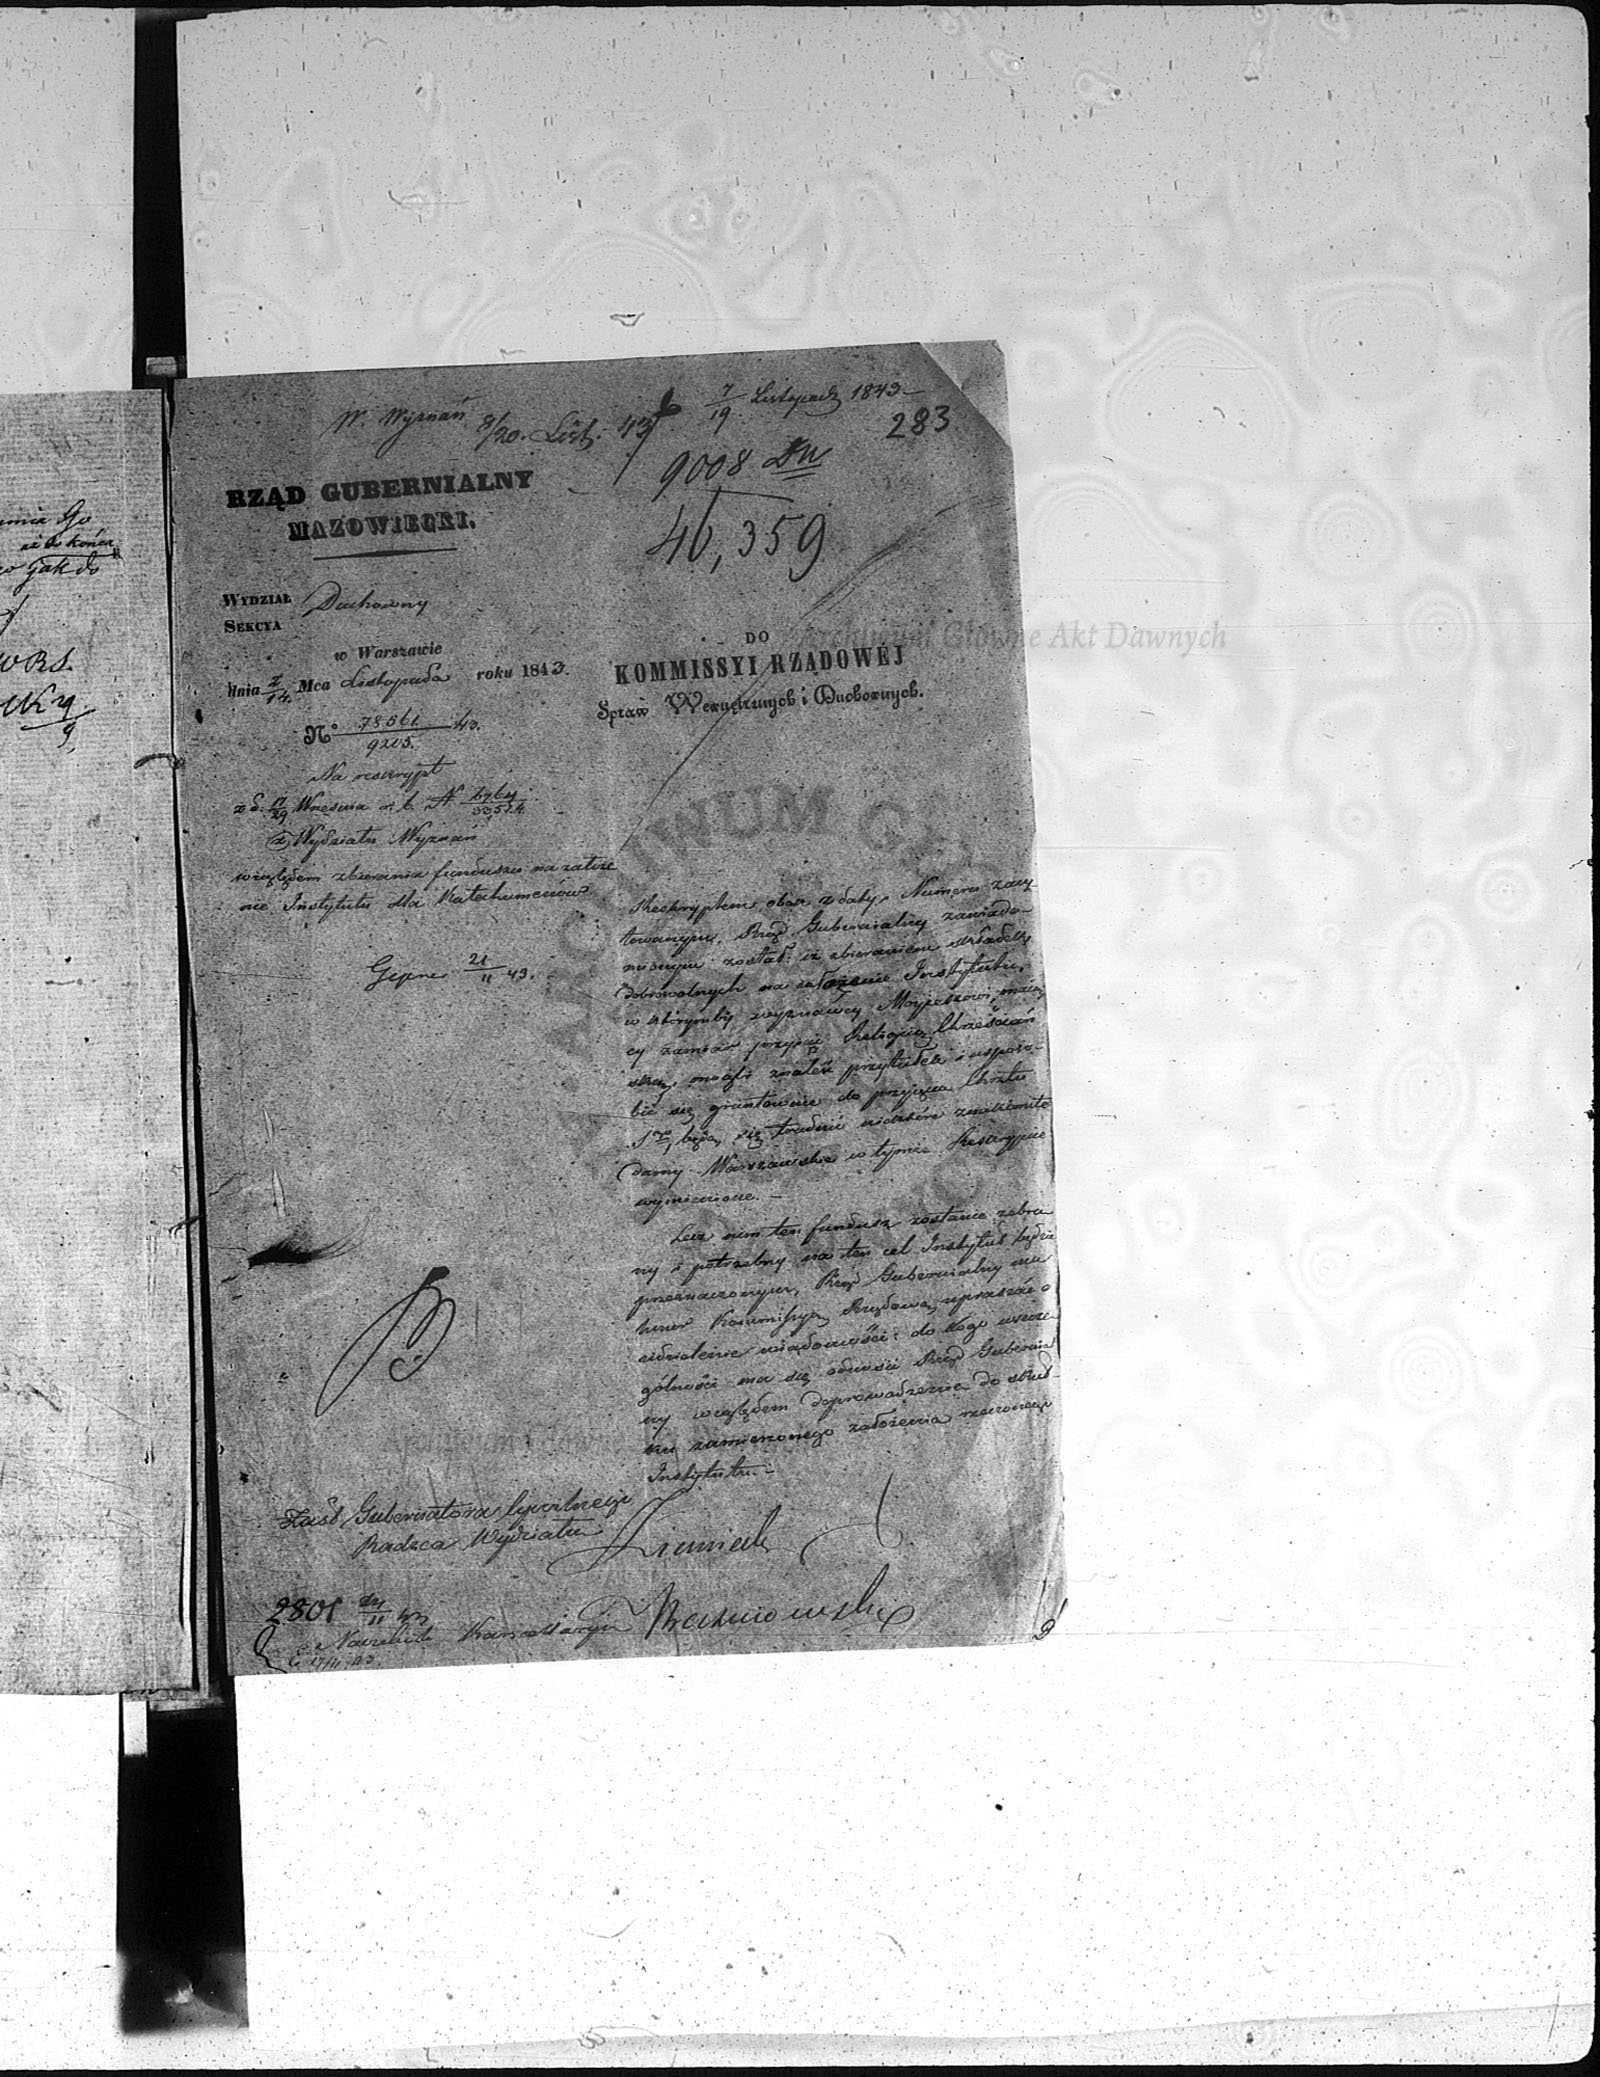 W. Wyznań 8/20. List. 43
7/19 Listopada 1843
283
9008 DW
46,359
RZĄD GUBERNIALNY
MAZOWIECKI.
WYDZIAŁ Duchowny
SEKCYA
w Warszawie
dnia 2/14. Mca Listopada roku 1843.
No 78561/9205. 43.
Na reskrypt
z d. 17/29 Września r. b. N
Wydziału Wyznań
względem zbierania funduszu na założe
nie Instytutu dla Katechumenów
21/11 43.
DO
KOMMISSYI RZĄDOWÉJ
Spraw Wewnętrznych i Duchownych.
Reskryptem obok z daty i Numeru zacy
towanym, Rząd Gubernialny zawiado-
mionym został: iż zbieraniem składek
dobrowolnych na założenie Instytutu,
w którymby wyznawcy Mojżeszowi, mają
cy zamiar przyjąć Religią Chrześciań
ską, mogli znaleść przytułek i usposo-
bić się gruntownie do przyjęcia Chrztu
Sgo, będą się trudnić niektóre znakomite
damy Warszawskie w tymże Reskrypcie
wymienione. –
Lecz nim ten fundusz zostanie zebra
ny i potrzebny na ten cel Instytut będzie
przeznaczonym, Rząd Gubernialny ma
honor Kommissyą Rządową upraszać o
udzielenie wiadomości: do kogo w szcze
gólności ma się odnosić Rząd Gubernial
ny względem doprowadzenia do skut-
ku zamierzonego założenia rzeczonego
Instytutu. –
Zast. Gubernatora Cywilnego
Radzca Wydziału
2801
11 43
Naczelnik Kancellaryi
17/11 43.
Archiwum Główne Akt Dawnych